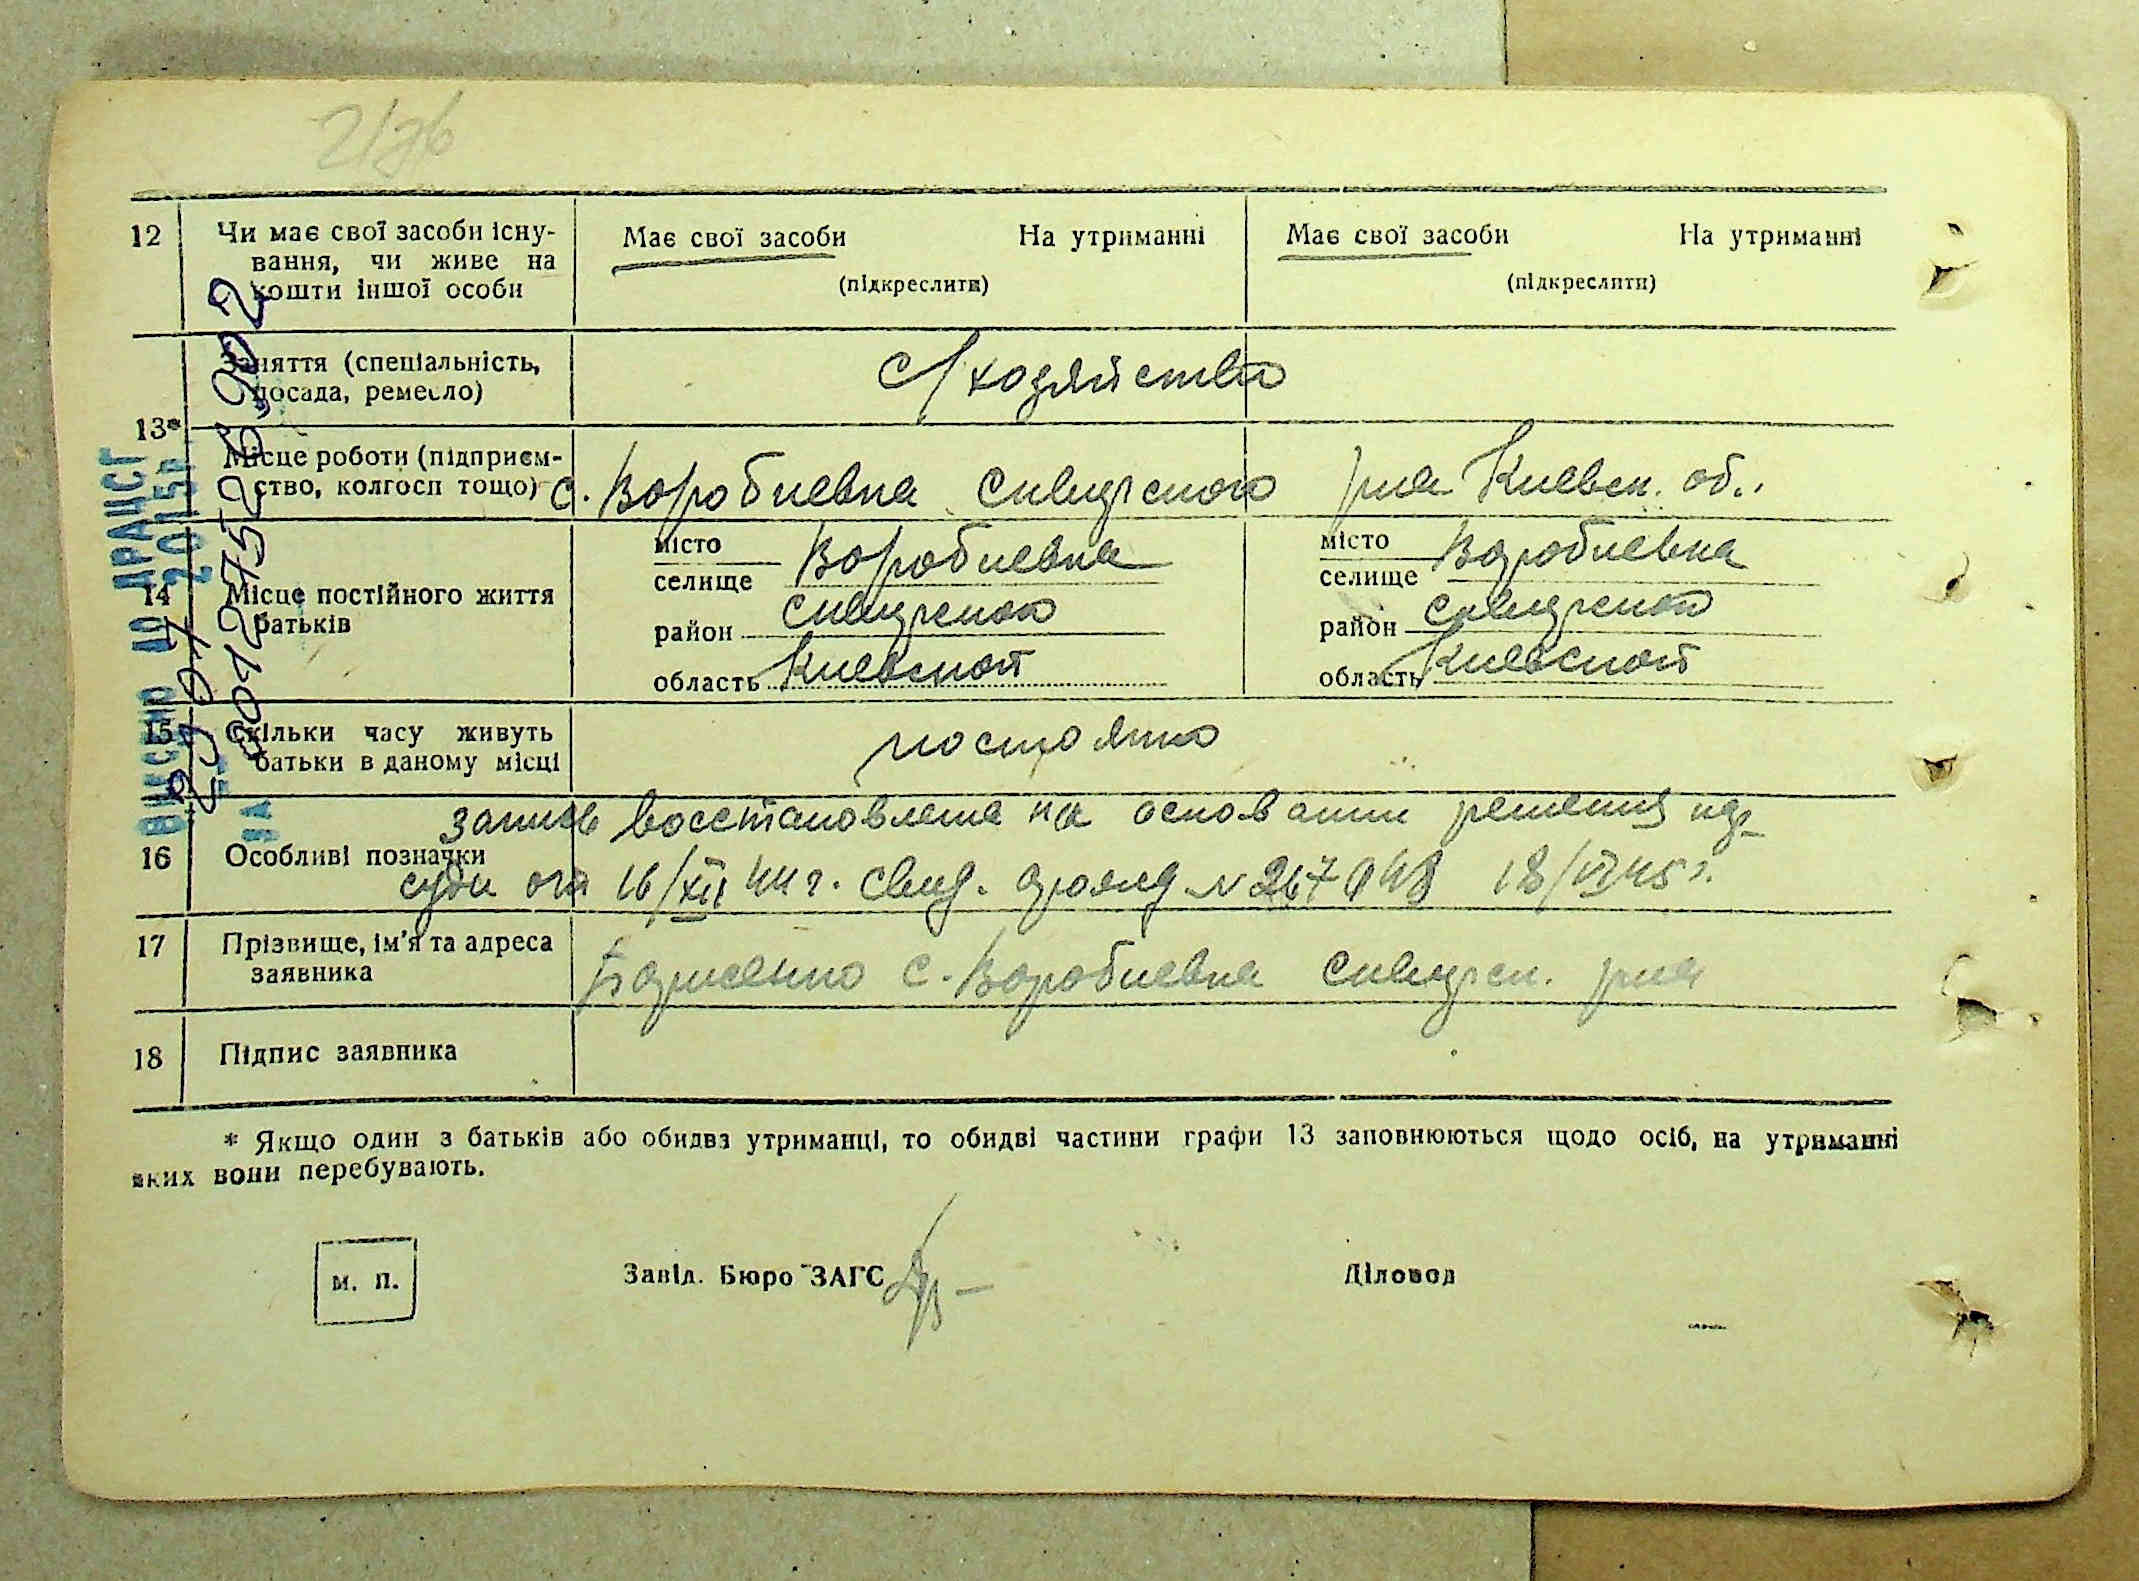 12 Чи має свої засоби існу- Має свої засоби На утриманні Має свої засоби На утриманні
вання, чи живе на
кошти іншої особи (підкреслити) (підкреслити)
Заняття (спеціальність, с/хозяйство
посада, ремесло)
13*
Місце роботи (підприєм-
ство, колгосп тощо) с. Воробиевка Сквирского р-на Киевск. об.
місто Воробиевка місто Воробиевка
селище селище
14 Місце постійного життя
батьків
район Сквирского район Сквирского
область Киевской область Киевской
15 Скільки часу живуть постоянно
батьки в даному місці
запись восстановлена на основании решения нар
16 Особливі позначки
суда от 16/XII 44 г. свид. 18/VI 45 г.
17 Прізвище, ім'я та адреса
заявника с. Воробиевка Сквирск. р-на
18 Підпис заявника
* Якщо один з батьків або обидва утриманці, то обидві частини графи 13 заповнюються щодо осіб, на утриманні
яких вони перебувають.
м. п. Завід. Бюро ЗАГС Діловод
ВНЕСЕНО ДО ДРАЦСГ
2015р
00127526902